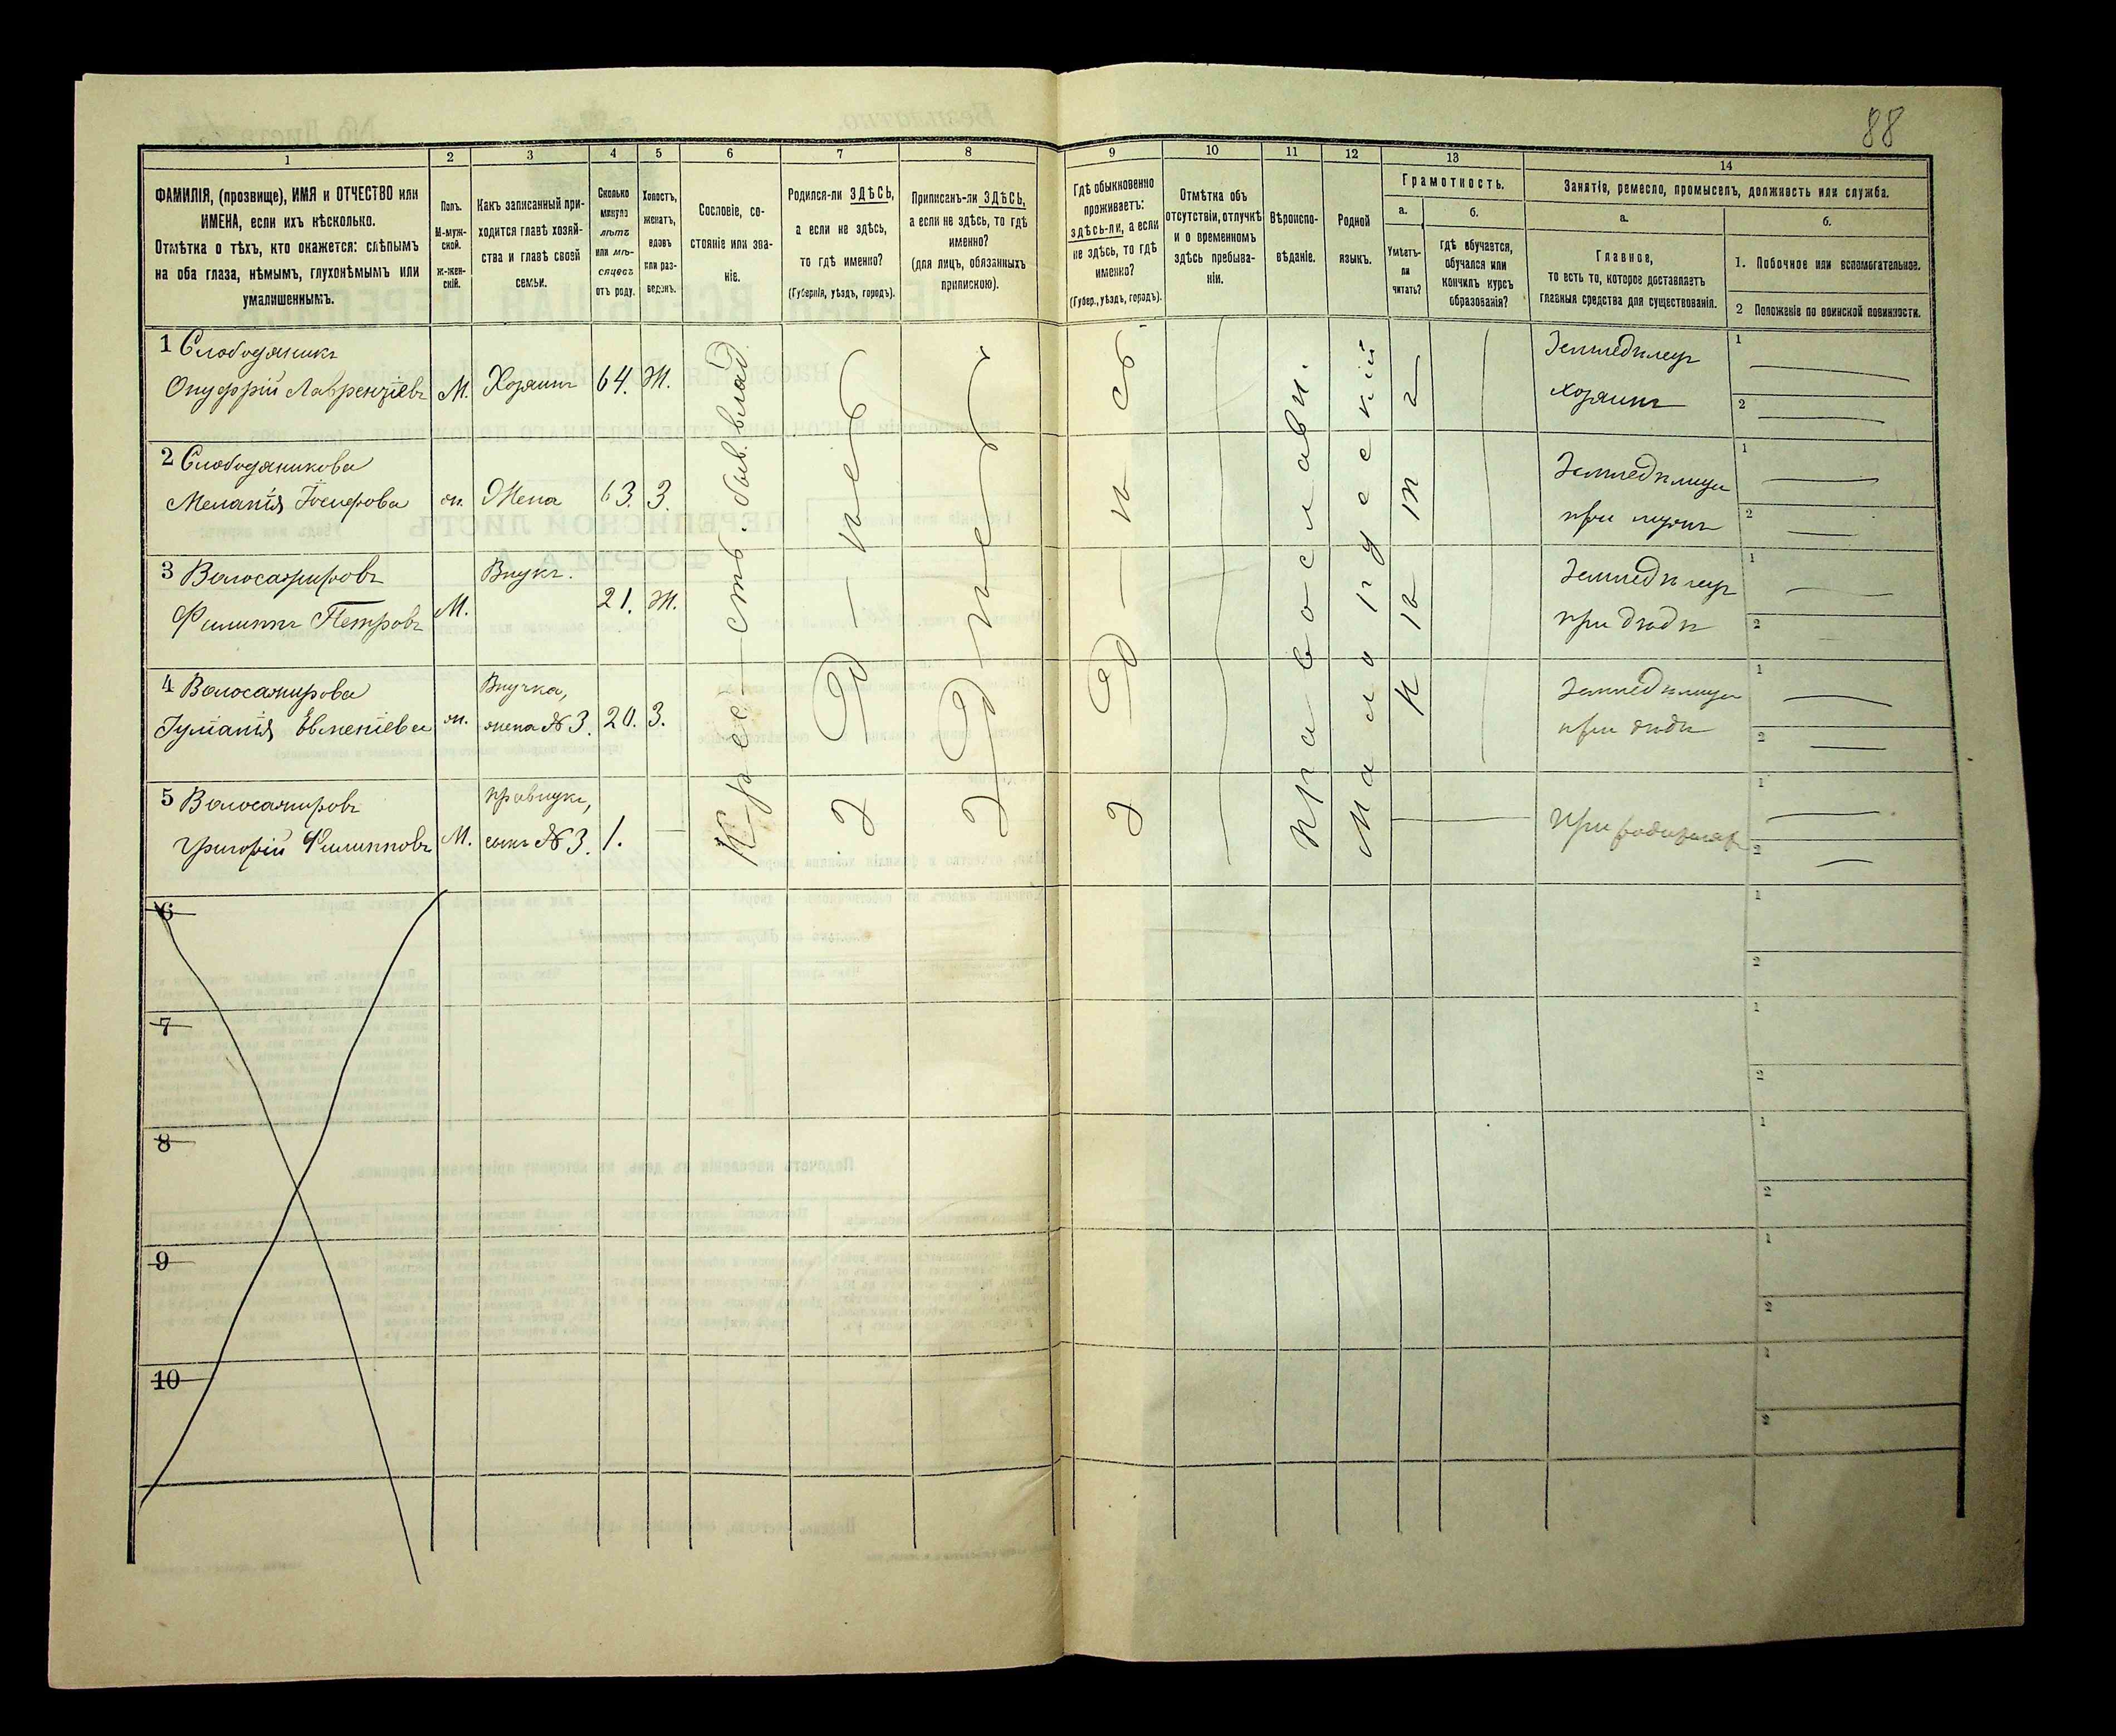 88
1 2 3 4 5 6 7 8 9 10 11 12 13 14
ФАМИЛІЯ, (прозвище), ИМЯ и ОТЧЕСТВО или
ИМЕНА, если ихъ нѣсколько.
Отмѣтка о тѣхъ, кто окажется: слѣпымъ
на оба глаза, нѣмымъ, глухонѣмымъ или
умалишеннымъ.
Полъ.
М-муж-
ской.
ж-жен-
скій.
Какъ записанный при-
ходится главѣ хозяй-
ства и главѣ своей
семьи.
Сколько
минуло
лѣтъ
или мѣ-
сяцевъ
отъ роду.
Холостъ,
женатъ,
вдовъ
или раз-
веденъ.
Сословіе, со-
стояніе или зва-
ніе.
Родился-ли ЗДѢСЬ,
а если не здѣсь,
то гдѣ именно?
(Губернія, уѣздъ, городъ).
Приписанъ-ли ЗДѢСЬ,
а если не здѣсь, то гдѣ
именно?
(для лицъ, обязанныхъ
припискою).
Гдѣ обыкновенно
проживаетъ:
здѣсь-ли, а если
не здѣсь, то гдѣ
именно?
(Губер., уѣздъ, городъ).
Отмѣтка объ
отсутствіи, отлучкѣ
и о временномъ
здѣсь пребыва-
ніи.
Вѣроиспо-
вѣданіе.
Родной
языкъ.
Грамотность.
а.
Умѣетъ-
ли
читать?
б.
гдѣ обучается,
обучался или
кончилъ курсъ
образованія?
Занятіе, ремесло, промыселъ, должность или служба.
а.
Главное,
то есть то, которое доставляетъ
главныя средства для существованія.
б.
1. Побочное или вспомогательное.
2 Положеніе по воинской повинности.
1 Слободяникъ
Онуфрій Лаврентіевъ М. Хозяинъ 64. Ж.
Земледѣлецъ
хозяинъ
1
2
2 Слободяникова
Меланія Іосифова ж. Жена 63. З.
Земледѣлица
при мужѣ
1
2
3 Волосажировъ
Филиппъ Петровъ М. Внукъ. 21. Ж.
Земледѣлецъ
при дѣдѣ
1
2
4 Волосажирова
Іуліанія Евменіева ж. Внучка,
жена № 3. 20. З.
Земледѣлица
при дѣдѣ
1
2
5 Волосажировъ
Григорій Филипповъ М. правнукъ,
сынъ № 3. 1.
При родителяхъ
1
2
Крес-стъ. быв. влад
Здѣсь
Здѣсь
Здѣсь
Правосл авн.
Малорусскій
нѣтъ
6
1
2
7
1
2
8
1
2
9
1
2
10
1
2